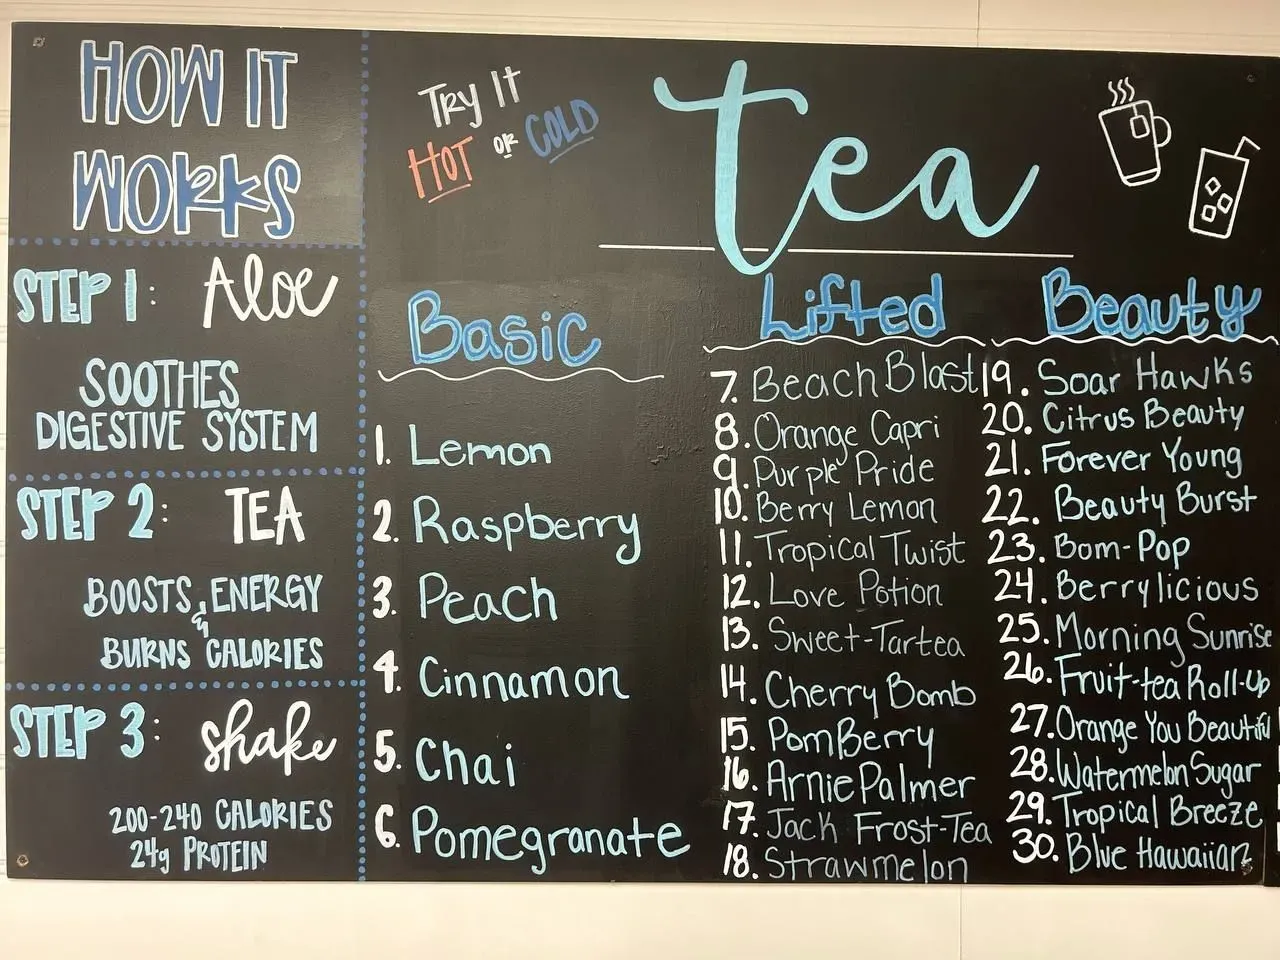 HOW IT
WORKS
STEP 1: Aloe
SOOTHES
DIGESTIVE SYSTEM
STEP 2: TEA
BOOSTS ENERGY
&
BURNS CALORIES
STEP 3: shake
200-240 CALORIES
24g PROTEIN
TRY IT
HOT OR COLD
tea
Basic
1. Lemon
2. Raspberry
3. Peach
4. Cinnamon
5. Chai
6. Pomegranate
Lifted
7. Beach Blast
8. Orange Capri
9. Purple Pride
10. Berry Lemon
11. Tropical Twist
12. Love Potion
13. Sweet-Tartea
14. Cherry Bomb
15. PomBerry
16. Arnie Palmer
17. Jack Frost-Tea
18. Strawmelon
Beauty
19. Soar Hawks
20. Citrus Beauty
21. Forever Young
22. Beauty Burst
23. Bom-Pop
24. Berrylicious
25. Morning Sunrise
26. Fruit-tea Roll-Up
27. Orange You Beautiful
28. Watermelon Sugar
29. Tropical Breeze
30. Blue Hawaiian